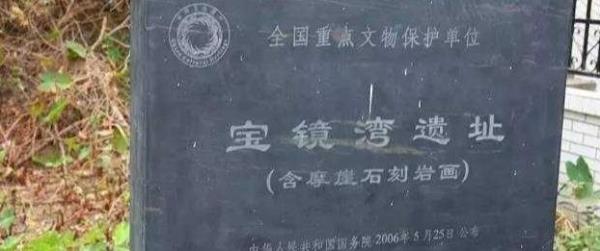 全国重点文物保护单位
宝镜湾遗址
(含摩崖石刻岩画)
中华人民共和国国务院 2006年5月25日公布